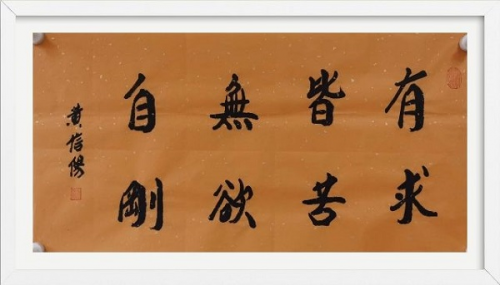 有求
皆苦
無欲
自剛
黄信陽